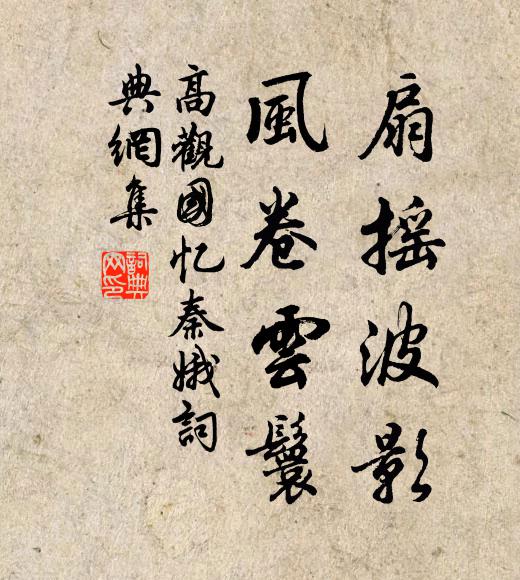 扇摇波影
風卷雲鬟
高觀國忆秦娥詞
典網集
詞典網印